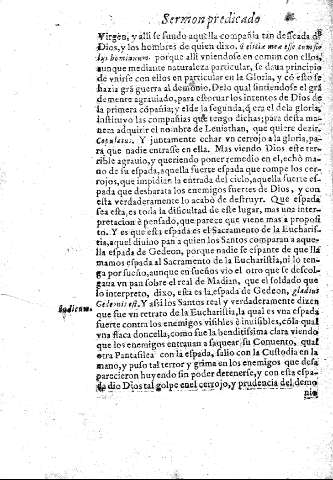 Sermon predicado
Virgen, y alli se fundo aquella compañia tan desseada d̃
Dios, y los hombres de quien dixo, delitiæ meæ esse cum fi-
lijs hominum. porque alli vniendose en comun con ellos,
aunque mediante naturaleza particular, se daua principio
de vnirse con ellos en particular en la Gloria, y cõ esto se
hazia grã guerra al demonio. Delo qual sintiendose el grã
demente agrauiado, para estoruar los intentos de Dios de
la primera cõpañia, y el de la segunda, q̃ era el dela gloria,
instituyo las compañias que tengo dichas; para desta ma-
nera adquirir el nombre de Leuiathan, que quiere dezir,
Copulatus. Y juntamente echar vn cerrojo a la gloria, pa-
ra que nadie entrasse en ella. Mas viendo Dios este ter-
rible agrauio, y queriendo poner remedio en el, echò ma-
no de su espada, aquella fuerte espada que rompe los cer-
rojos, que impidiã la entrada del cielo, aquella fuerte es-
pada que desbarata los enemigos fuertes de Dios, y con
esta verdaderamente lo acabò de destruyr. Que espada
sea esta, es toda la dificultad de este lugar, mas vna inter-
pretacion è pensado, que parece que viene mas a proposi-
to. Y es que esta espada es el Sacramento de la Eucharis-
tia, aquel diuino pan a quien los Santos comparan a aque-
lla espada de Gedeon, porque nadie se espante de que lla-
mamos espada al Sacramento de la Eucharistia, ni lo ten-
ga por sueño, aunque en sueños vio el otro que se descol-
gaua vn pan sobre el real de Madian, que el soldado que
lo interpreto, dixo, esta es la espada de Gedeon, gladius
Gedeonis est. Y assi los Santos real y verdaderamente dizen
Iudicum.
que fue vn retrato de la Eucharistia, la qual es vna espada
fuerte contra los enemigos visibles è inuisibles, cõ la qual
vna flaca doncella, como fue la benditissima clara viendo
que los enemigos entrauan a saquear su Conuento, qual
otra Pantasilea con la espada, salio con la Custodia en la
mano, y puso tal terror y grima en los enemigos que desa
parecieron huyendo sin poder detenerse, y con esta espa-
da dio Dios tal golpe en el cerrojo, y prudencia del demo
nio